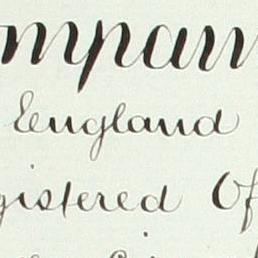 ompan
England
gistered Of